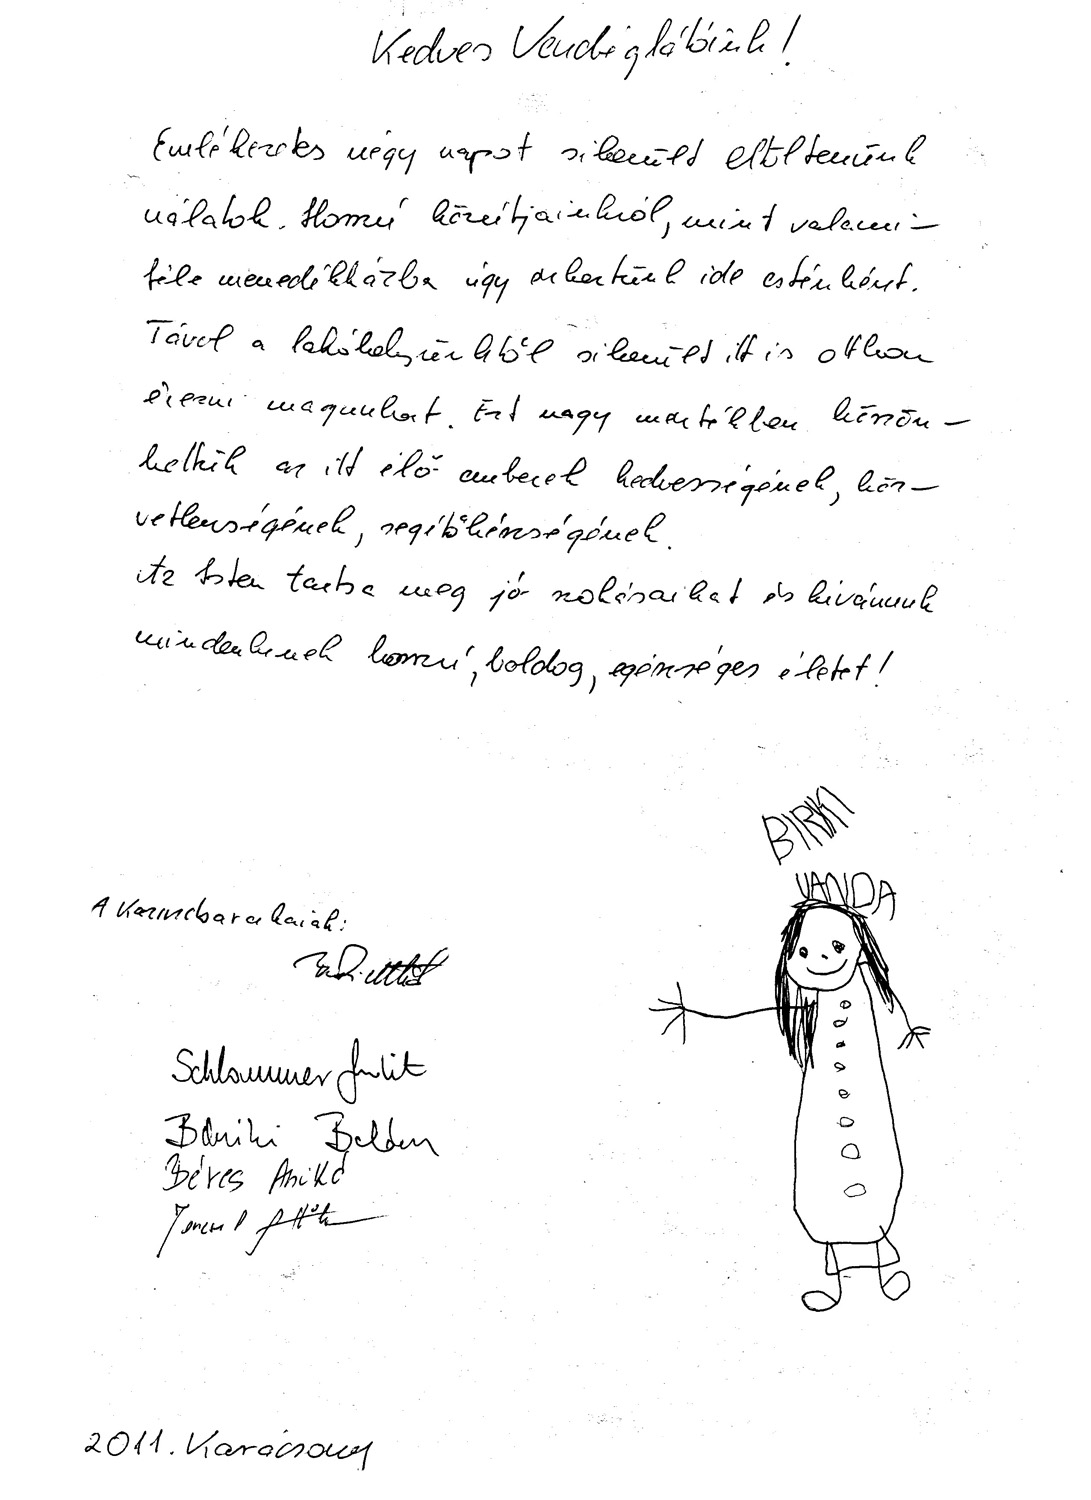 Kedves Vendéglátóink!
Emlékezetes négy napot sikerült eltöltenünk
nálatok. Hosszú körútjainkról, mint valami-
féle menedékházba úgy érkeztünk ide esténként.
Távol a lakóhelyünktől sikerült itt is otthon
érezni magunkat. Ezt nagy mértékben köszön-
hetjük az itt élő emberek kedvességének, köz-
vetlenségének, segítőkészségének.
Az Isten tartsa meg jó szokásaikat és kivánunk
mindenkinek hosszú, boldog, egészséges életet!
BIRKI
VANDA
A Kazincbarcikaiak:
Schlammer Judit
Béres Anikó
2011. Karácsony